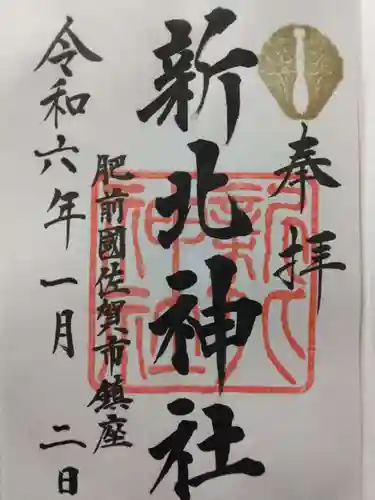 奉拝
新北神社
肥前國佐賀市鎮座
令和六年一月二日
新北神社